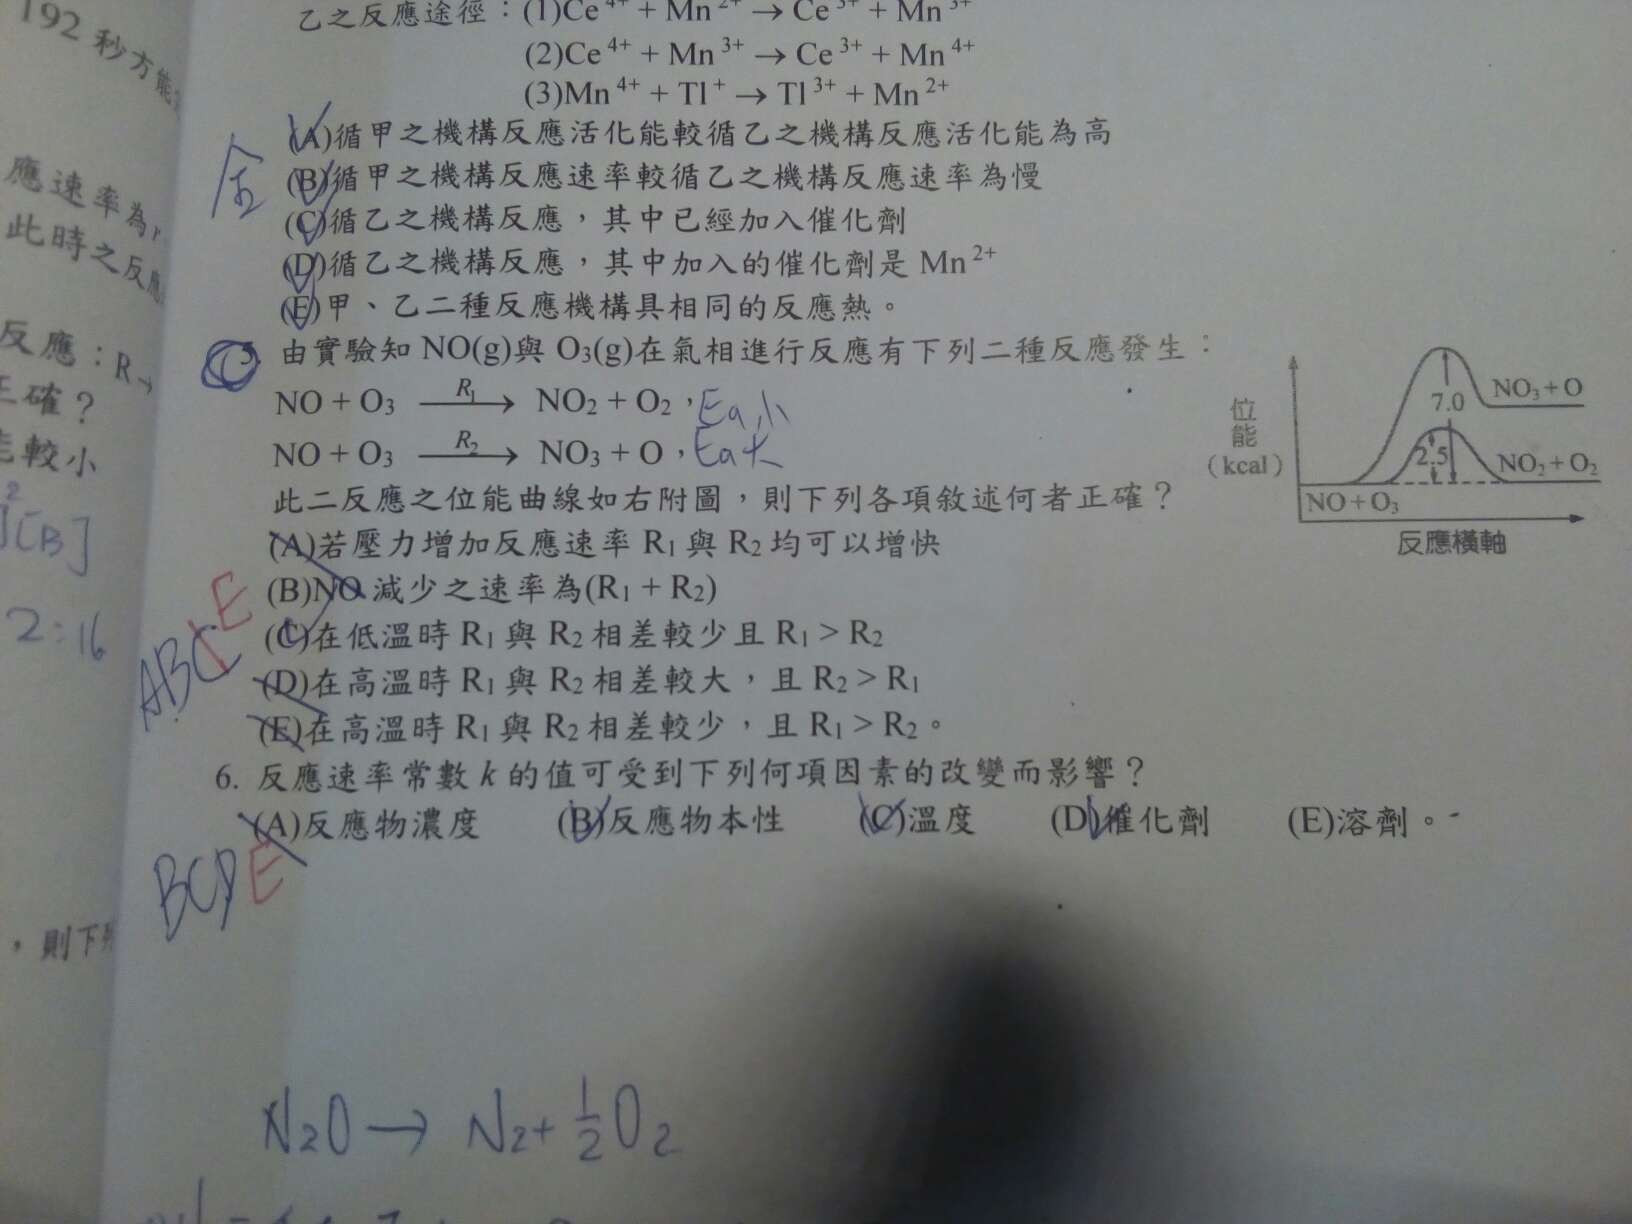 192 秒方能
應速率為r
此時之反應
反應：R→
正確？
能較小
2
][B]
2:16
，則下列
乙之反應途徑：(1)Ce⁴⁺ + Mn²⁺ → Ce³⁺ + Mn³⁺
(2)Ce⁴⁺ + Mn³⁺ → Ce³⁺ + Mn⁴⁺
(3)Mn⁴⁺ + Tl⁺ → Tl³⁺ + Mn²⁺
全
(A)循甲之機構反應活化能較循乙之機構反應活化能為高
(B)循甲之機構反應速率較循乙之機構反應速率為慢
(C)循乙之機構反應，其中已經加入催化劑
(D)循乙之機構反應，其中加入的催化劑是 Mn²⁺
(E)甲、乙二種反應機構具相同的反應熱。
5 由實驗知 NO(g)與 O₃(g)在氣相進行反應有下列二種反應發生：
NO + O₃ —R₁→ NO₂ + O₂，Ea小
NO + O₃ —R₂→ NO₃ + O，Ea大
此二反應之位能曲線如右附圖，則下列各項敘述何者正確？
位能(kcal)
7.0
NO₃ + O
2.5
NO₂ + O₂
NO + O₃
反應橫軸
(A)若壓力增加反應速率 R₁ 與 R₂ 均可以增快
(B)NO 減少之速率為(R₁ + R₂)
(C)在低溫時 R₁ 與 R₂ 相差較少且 R₁ > R₂
(D)在高溫時 R₁ 與 R₂ 相差較大，且 R₂ > R₁
(E)在高溫時 R₁ 與 R₂ 相差較少，且 R₁ > R₂。
ABC E
6. 反應速率常數 k 的值可受到下列何項因素的改變而影響？
(A)反應物濃度 (B)反應物本性 (C)溫度 (D)催化劑 (E)溶劑。
BCD E
N₂O → N₂ + ½O₂